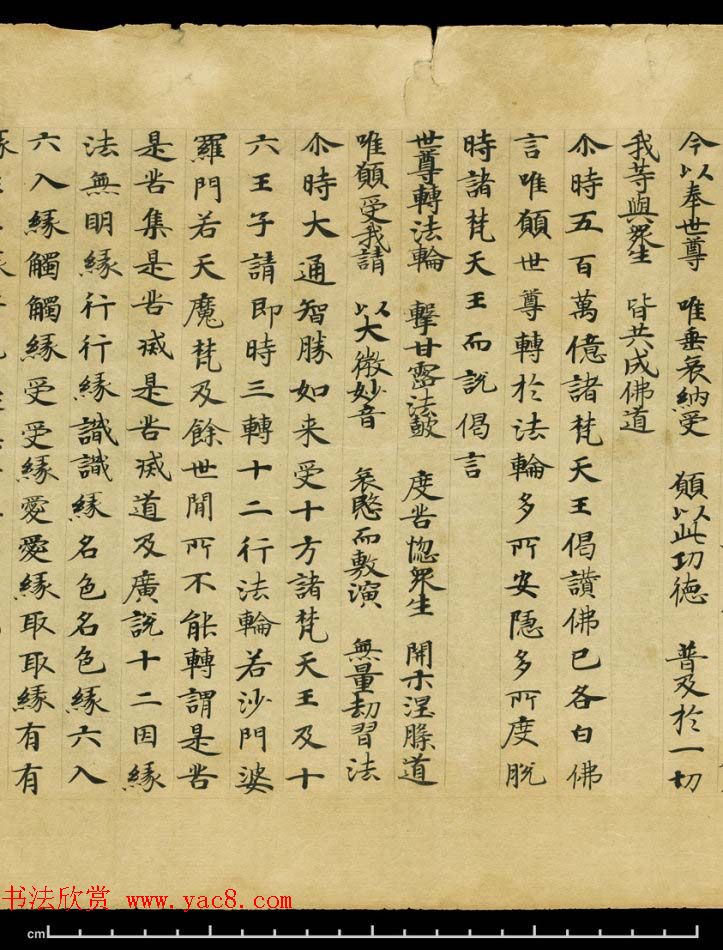 今以奉世尊 唯垂哀納受 願以此功德 普及於一切
我等與衆生 皆共成佛道
尒時五百萬億諸梵天王偈讚佛已各白佛
言唯願世尊轉於法輪多所安隱多所度脫
時諸梵天王而說偈言
世尊轉法輪 擊甘露法皷 度苦惱衆生 開示涅槃道
唯願受我請 以大微妙音 哀愍而敷演 無量劫習法
尒時大通智勝如来受十方諸梵天王及十
六王子請即時三轉十二行法輪若沙門婆
羅門若天魔梵及餘世間所不能轉謂是苦
是苦集是苦滅是苦滅道及廣說十二因緣
法無明緣行行緣識識緣名色名色緣六入
六入緣觸觸緣受受緣愛愛緣取取緣有有
书法欣赏 www.yac8.com
cm